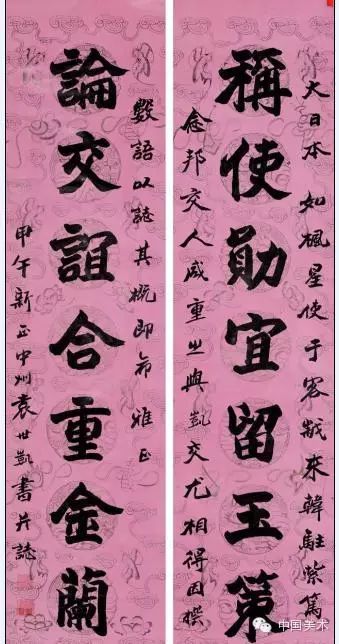 大日本 如楓星使于客歲來韓駐紮篤
稱使勛宜留玉策
念邦交人咸重之與凱交尤相得因撰
數語以誌其概即希 雅正
論交誼合重金蘭
甲午新正中州袁世凱書并誌
中国美术